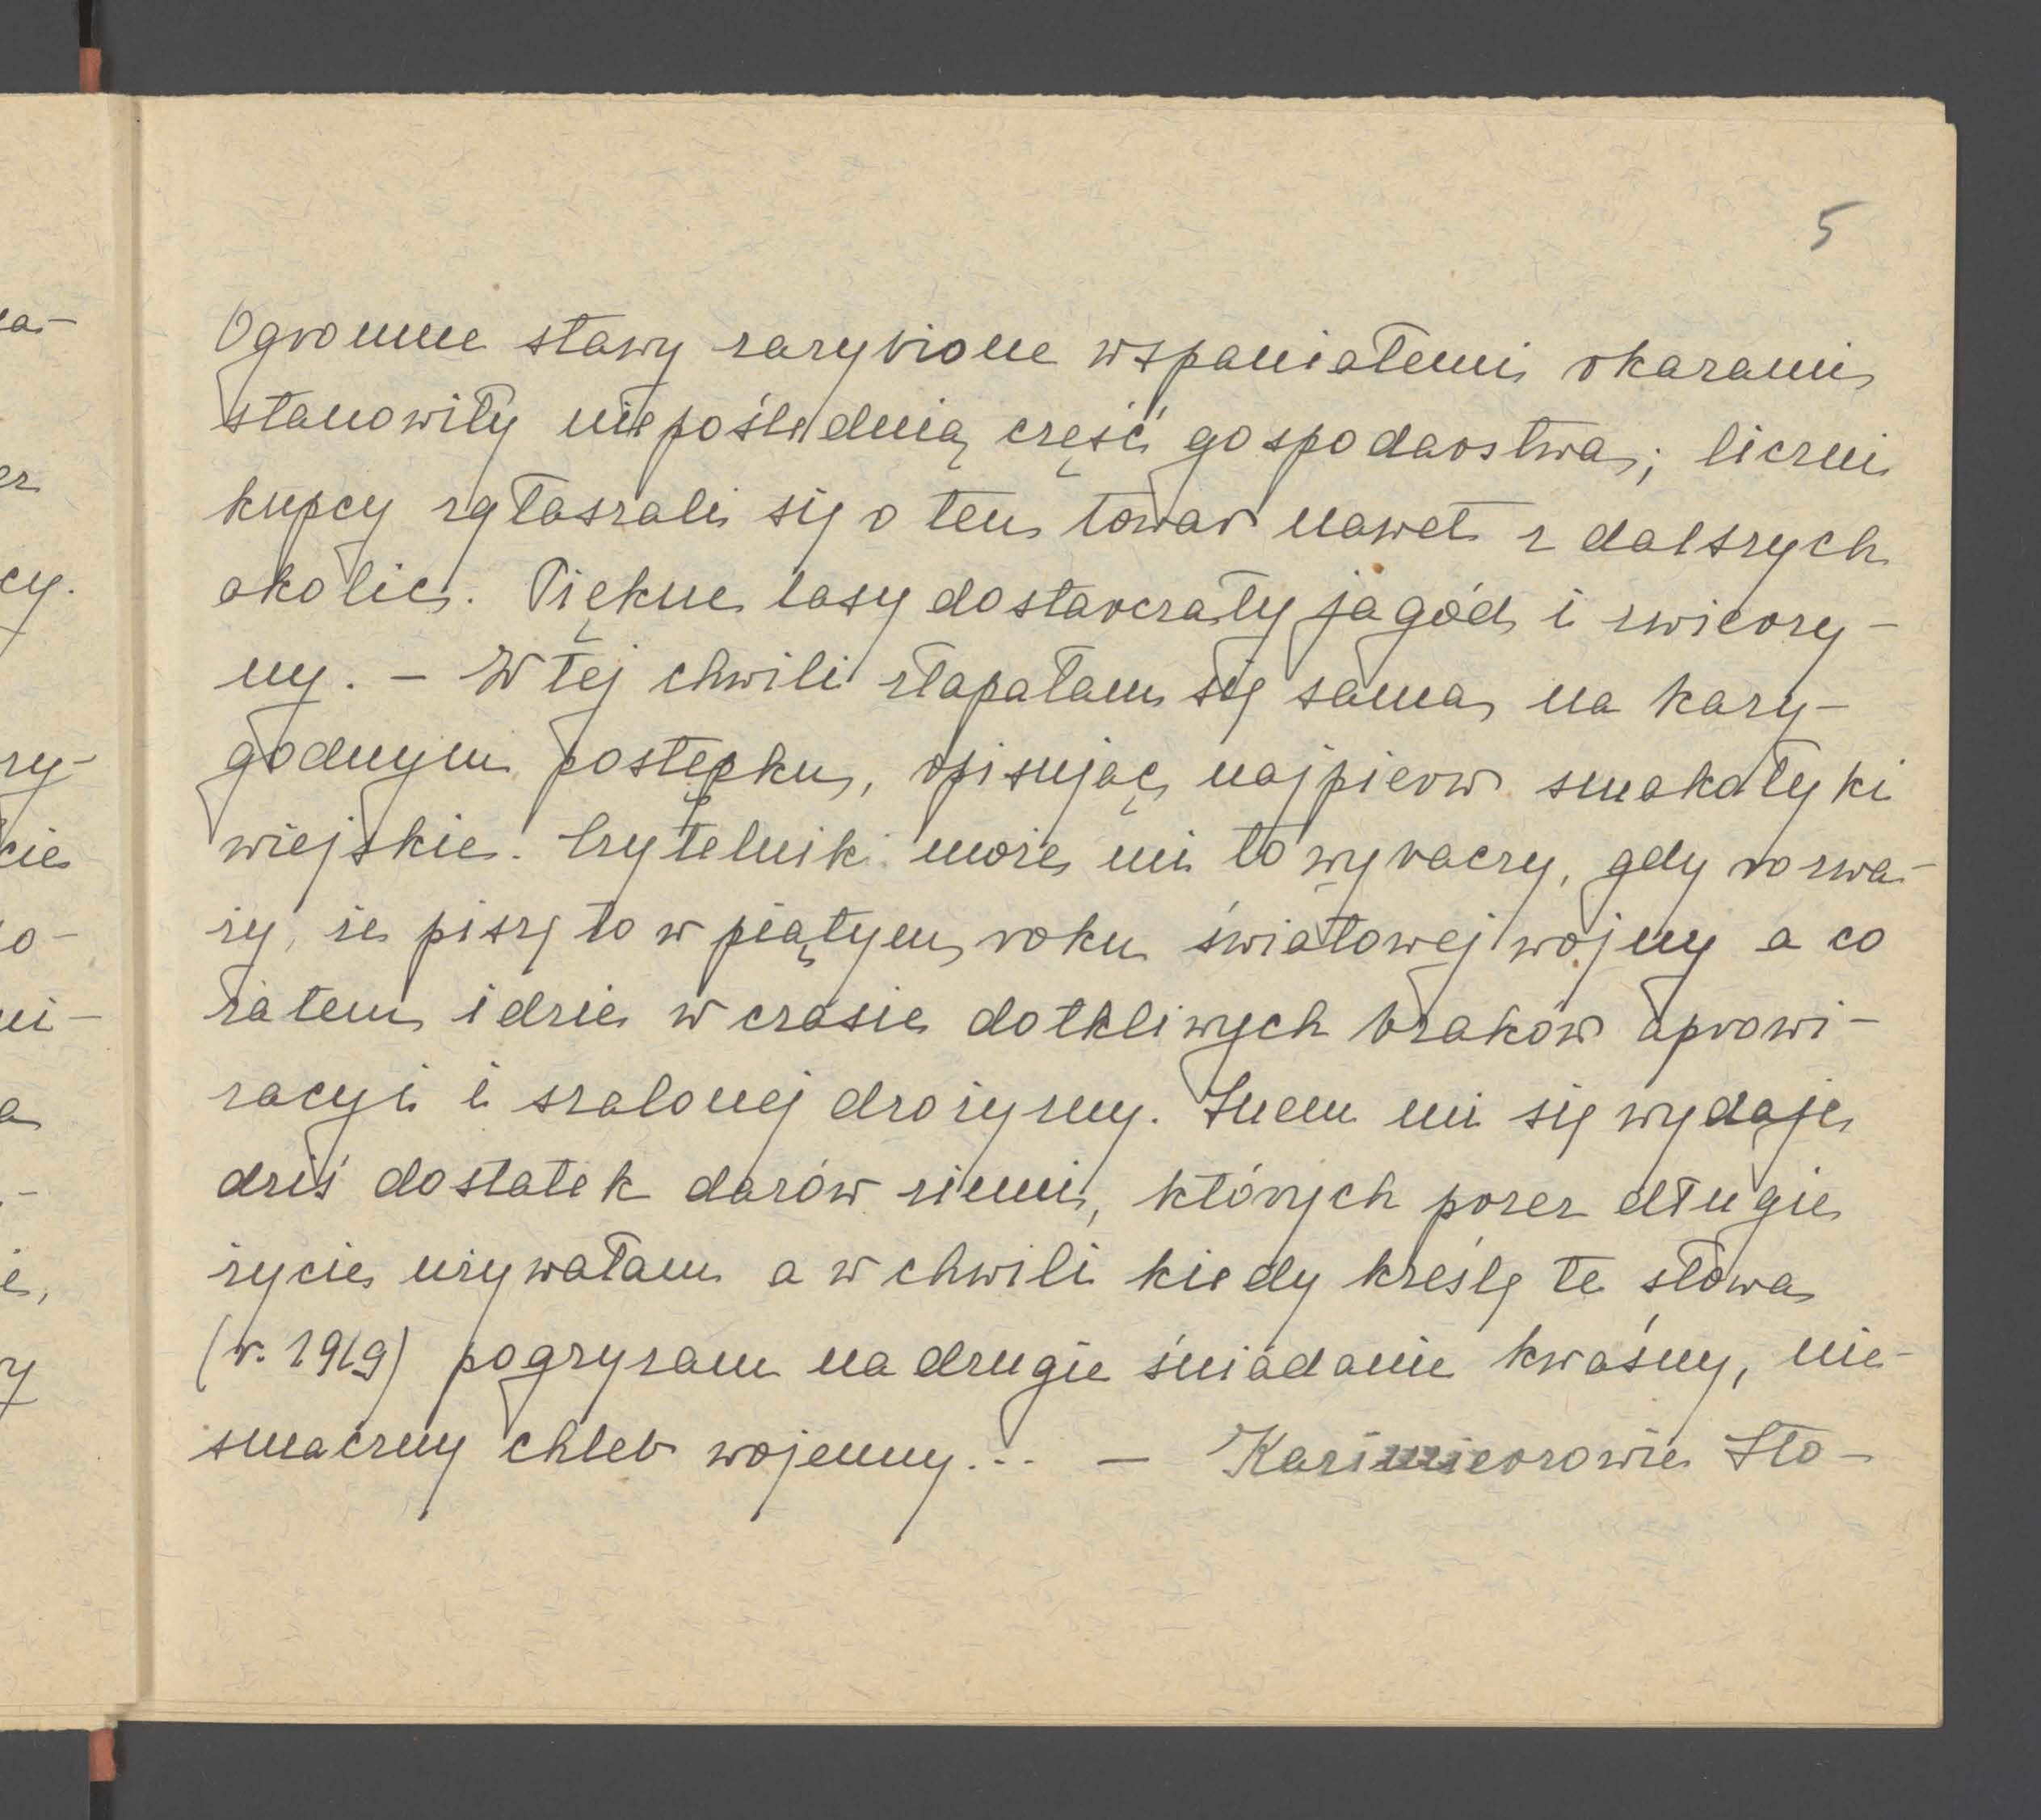 5
Ogromne stawy zarybione wspaniałemi okazami
stanowiły niepoślednią część gospodarstwa; liczni
kupcy zgłaszali się o ten towar nawet z dalszych
okolic. Piękne lasy dostarczały jagód i zwierzy-
ny. – W tej chwili złapałam się sama na kary-
godnym postępku, opisując najpierw smakołyki
wiejskie. Czytelnik może mi to wybaczy, gdy rozwa-
ży, że piszę to w piątym roku światowej wojny a co
zatem idzie w czasie dotkliwych braków aprowi-
zacyi i szalonej drożyzny. Snem mi się wydaje
dziś dostatek darów ziemi, których przez długie
życie używałam a w chwili kiedy kreślę te słowa
(r. 1919) pogryzam na drugie śniadanie kwaśny, nie-
smaczny chleb wojenny... – Kazimierzowie Sto-